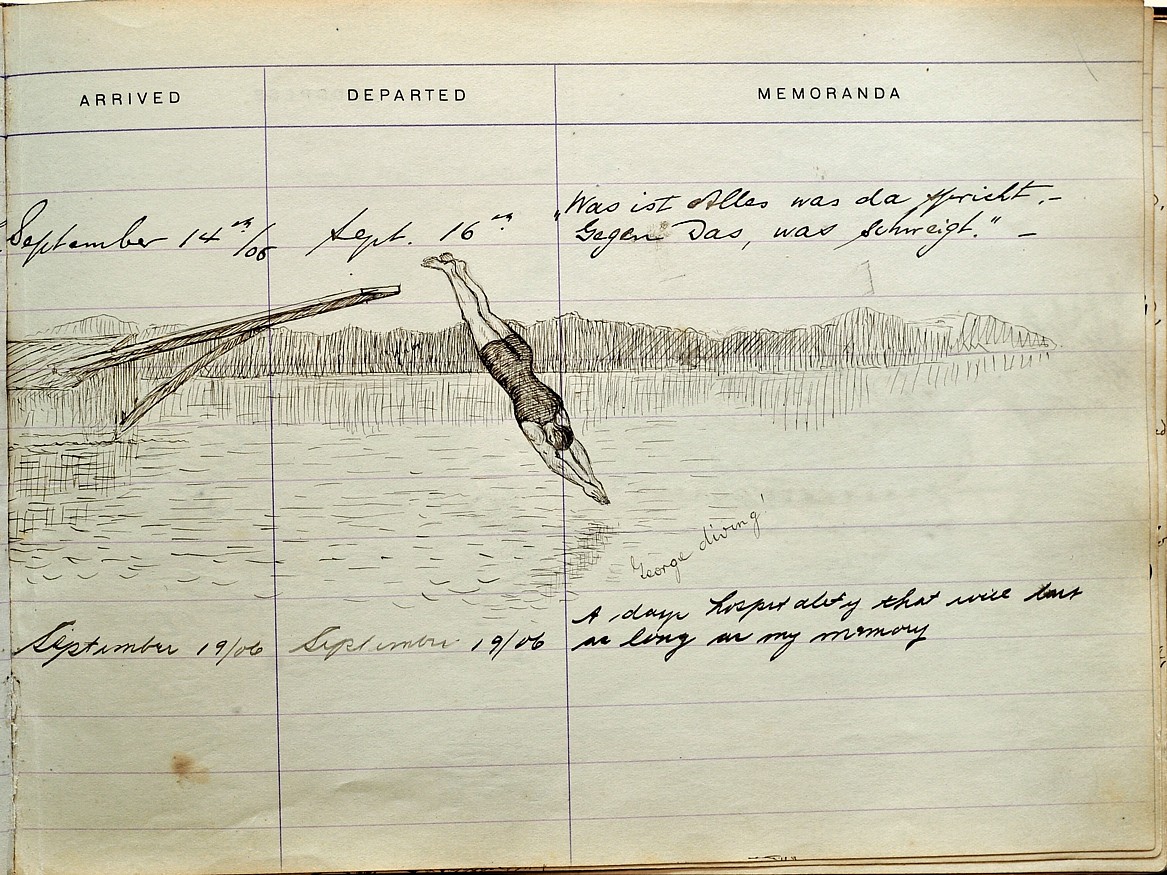 ARRIVED DEPARTED MEMORANDA
"Was ist Alles was da spricht, –
September 14th/06 Sept. 16th. Gegen Das, was schweigt." –
'George diving'
A days hospitality that will last
September 19/06 September 19/06 as long as my memory